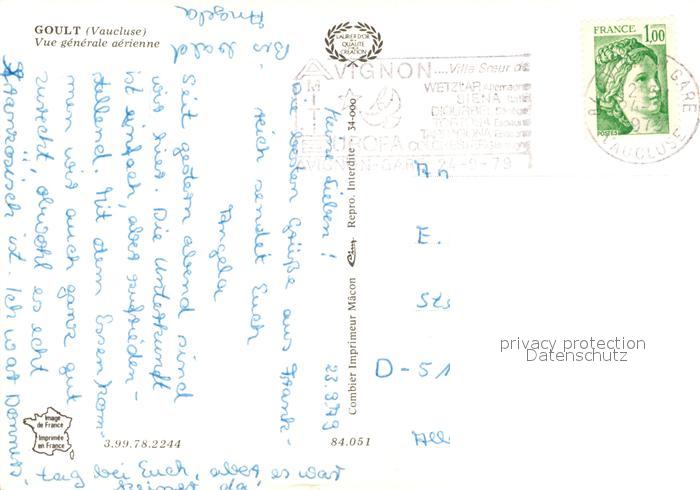 GOULT (Vaucluse)
Vue générale aérienne
LAURIER D'OR
QUALITÉ
CRÉATION
FRANCE 1,00
POSTES
AVIGNON....Ville Sœur de
WETZLAR Allemagne
SIENA Italie
TORTOSA Espagne
TARRAGONA Espagne
EUROPA COLCHESTER
AVIGNON-GARE 24-9-79
GARE
VAUCLUSE
23.9.79
Meine Lieben!
Die besten Grüße aus Frank-
reich sendet Euch
Angela
Seit gestern abend sind
wir hier. Die Unterkunft
ist einfach, aber zufrieden-
stellend. Mit dem Essen kom-
men wir auch ganz gut
zurecht, obwohl es echt
französisch ist. Ich war Donners-
tag bei Euch, aber es war
keiner da.
Bis bald
Angela
Combier Imprimeur Mâcon Repro. Interdite 34-000
An
E.
Sts
D-51
All
privacy protection
Datenschutz
Image de France
Imprimée en France
3.99.78.2244
84.051